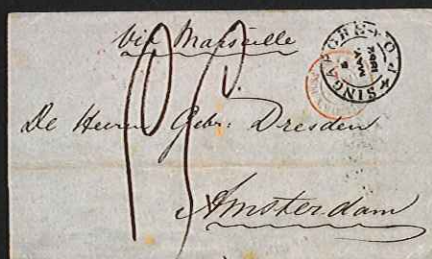 Via Marseille
SINGAPORE P.O.
MAY
De Heeren Gebr. Dresden
Amsterdam